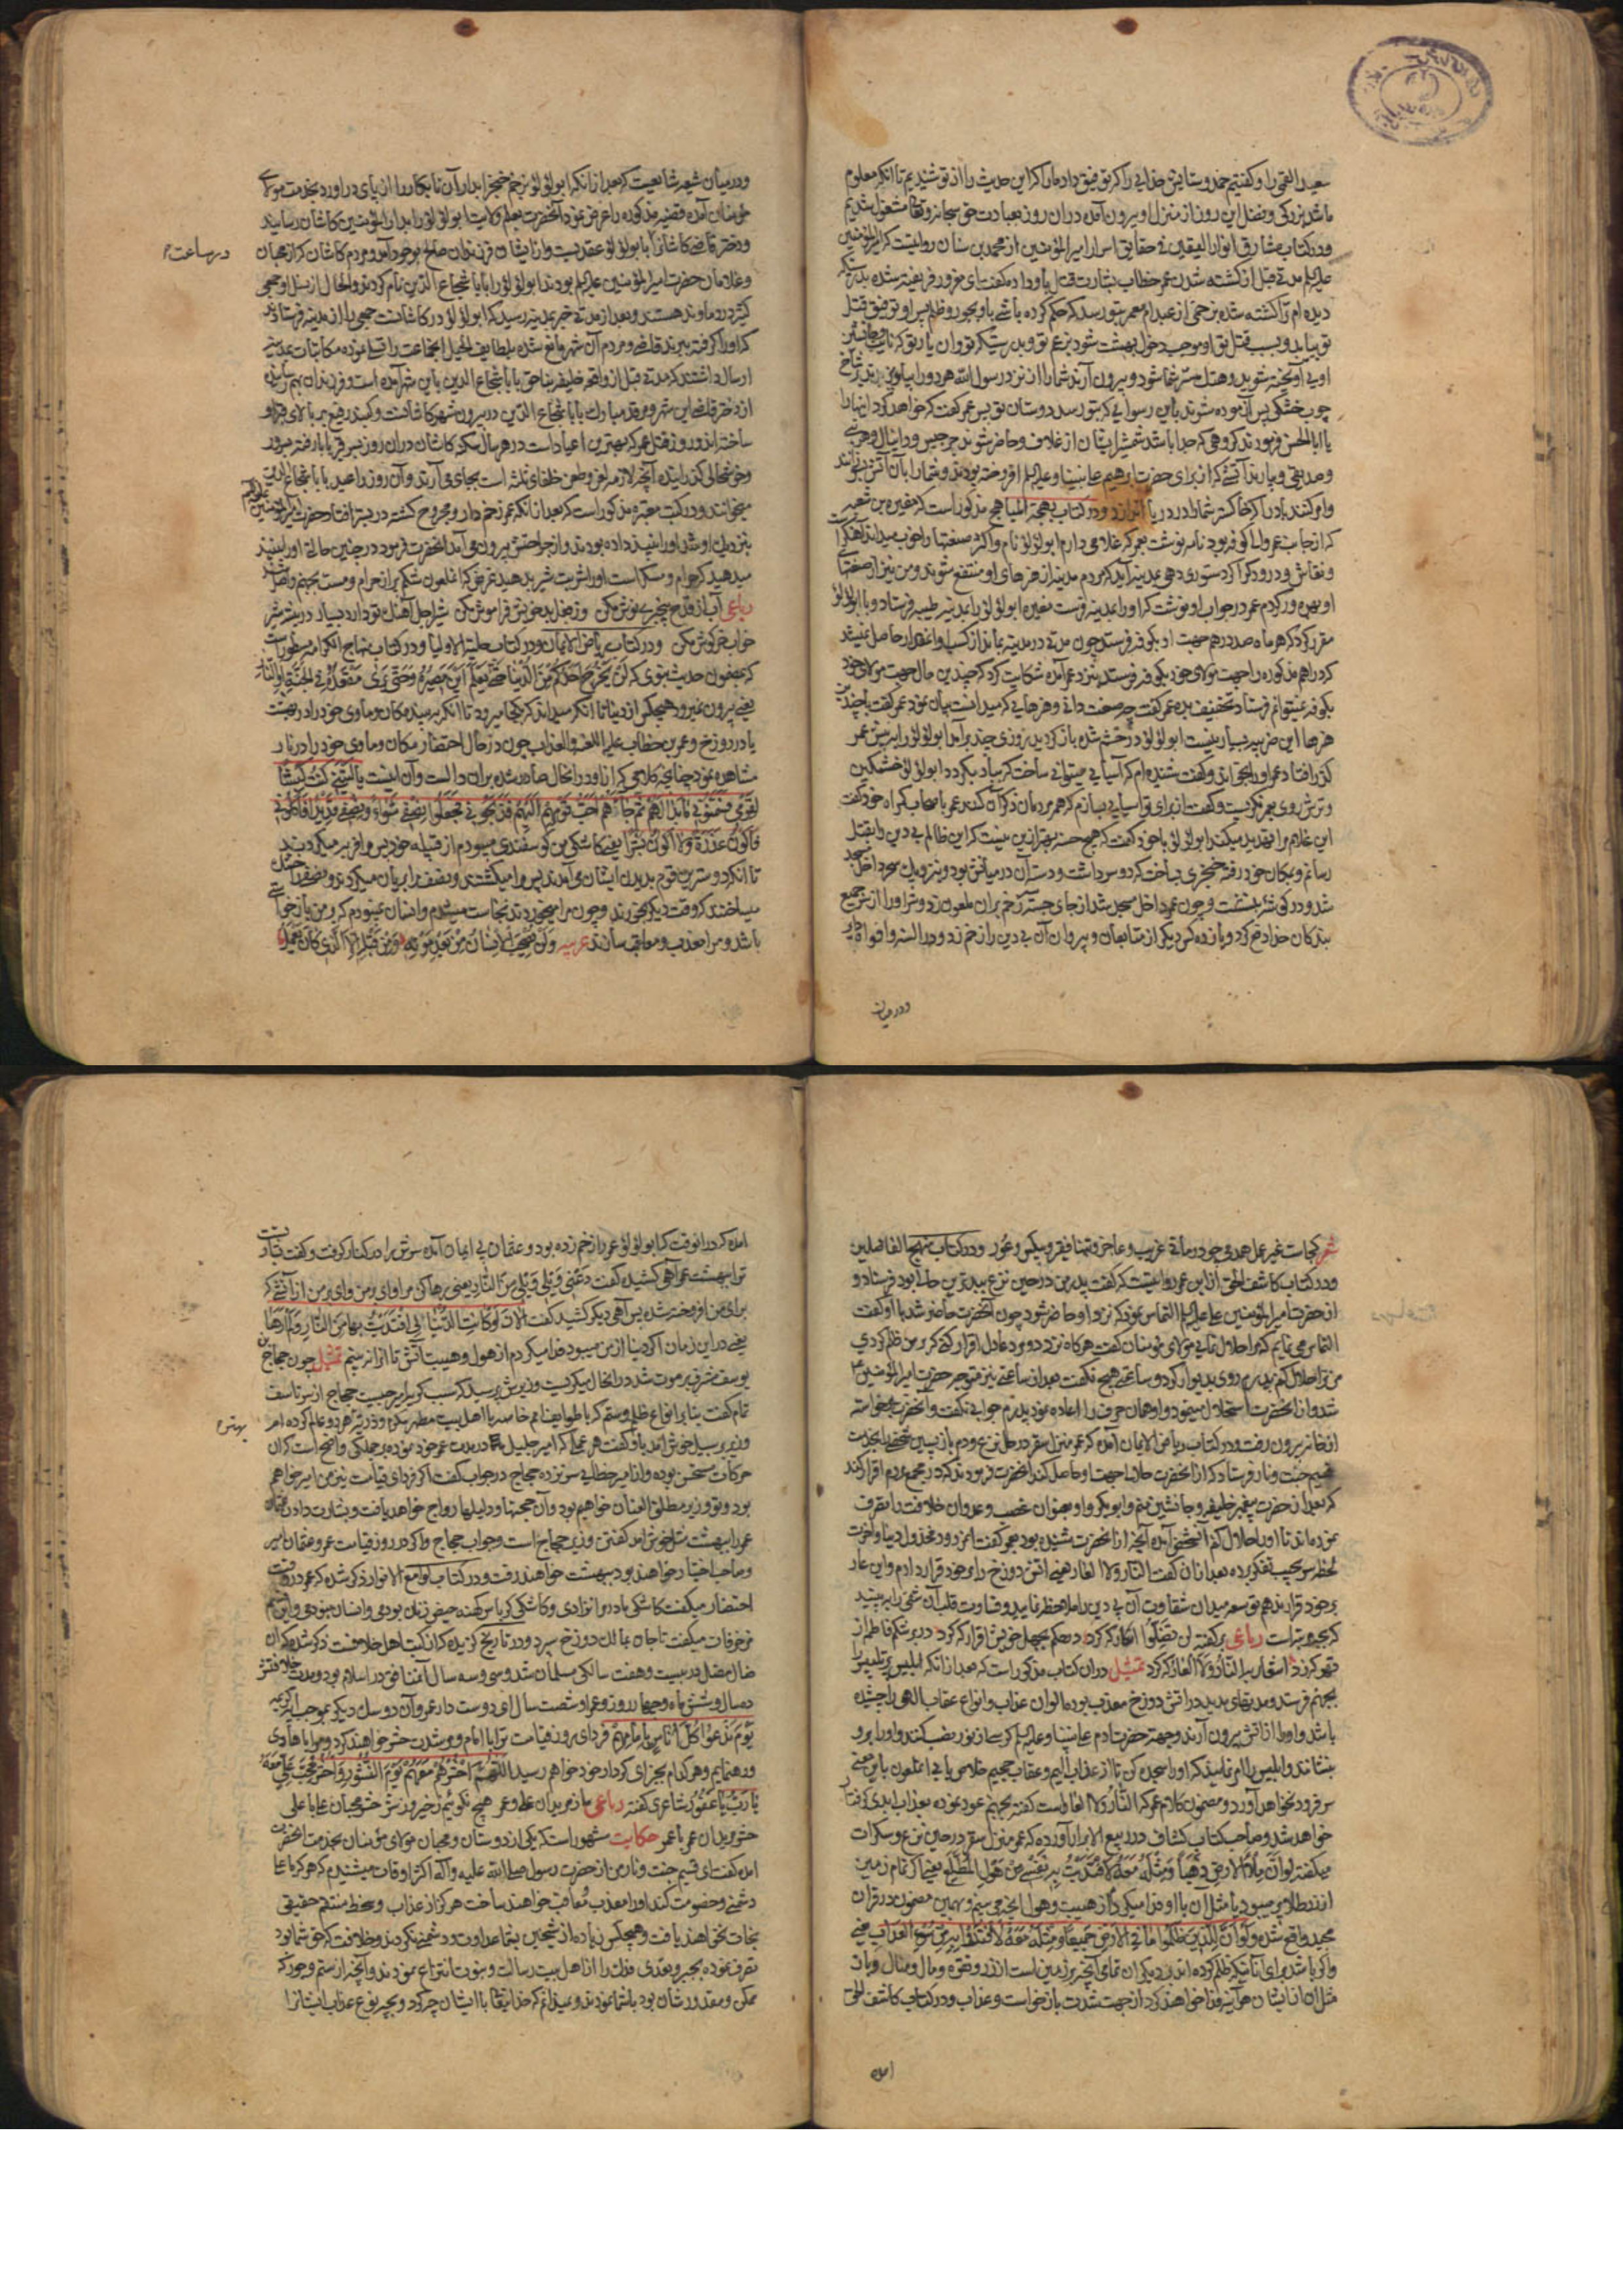 سعید القمی را و کفتیم حمد و ستایش خدایی را که توفیق داد ما را که این حدیث را از تو شنیدیم تا آنکه معلوم
ما شد بزرکی و فضل این روز از منزل او بیرون آمده دران روز بعبادت حق سبحانه وتعا مشغول شدیم
ودر کتاب مشارق انوار الیقین فی حقایق اسرار امیر المؤمنین از محمد بن سنان روایتست که امیر المؤمنین
علیه السلم مدتی قبل از کشته شدن عمر خطاب بشارت قتل باو داده کفت ای مغرور فریفته شده بدرستیکه
دیده ام ترا کشته شده بزخمی از عبد ام معمر بتو رسد که حکم کرده باشی باو بجور و ظلم پس او توفیق قتل
تو بیابد و بسبب قتل تو او موجب دخول بهشت شود برغم تو وبدرستیکه تو وان یار تو که نایب و جانشین
چوب خشکی پس آزموده شوند باین رسوایی که بتو رسد دوستان تو پس عمر کفت که خواهد کرد اینها را
یا ابا الحسن فرمودند کروهی که جدا باشد شمشیر ایشان از غلاف و حاضر شوند جرجیس ودانیال وهر نبی
وصدیقی وبیارند آتشی که از برای حضرت ابرهیم علی نبینا وعلیه السلم افروخته بودند وشما را بآن آتش بسوزانند
وامر کنند باد را که خاکستر شما را در دریا اندازد ودر کتاب بهجة المباهج مذکور است که مغیره بن شعبه
که از جانب عمر والی کوفه بود نامه نوشت بعمر که غلامی دارم ابو لؤلؤ نام واکثر صنعتها را خوب میداند آهنکر
ونقاش ودرودکر اکر دستوری دهی بمدینه آید که مردم مدینه از هنرهای او منتفع شوند ومن نیز از صنعتهای
او بهره ور کردم عمر در جواب او نوشت که او را بمدینه فرست مغیره ابو لؤلؤ را بمدینه طیبه فرستاد وبا ابو لؤلؤ
مقرر کرد که هر ماه صد درهم جهت او بکوفه فرستد چون مدتی در مدینه بماند از کسب او انقدر حاصل نمیشد
که دراهم مذکوره را جهت مولای خود بکوفه فرستد بنزد عمر آمده شکایت کرد که چندین مال جهت مولای خود
بکوفه نمیتوانم فرستاد تخفیف بده عمر کفت چه صنعت دانی وهنرهایی که میدانست بیان نمود عمر کفت با چندین
هنرها این ضریبه بسیار نیست ابو لؤلؤ در خشم شده باز کردید روزی چند برآمد ابو لؤلؤ را بر پیش عمر
کذر افتاد عمر او را بخواند وکفت شنیده ام که آسیایی میتوانی ساخت که بباد بکردد ابو لؤلؤ خشمکین
وترش روی بعمر نکریست وکفت از برای تو آسیایی بسازم که همه مردمان ذکر آن کنند عمر باصحاب کمراه خود کفت
این غلام مرا تهدید میکند ابو لؤلؤ با خود کفت که هیچ حسنه بهتر ازین نیست که این ظالم بی دین را بقتل
رسانم وبمکان خود رفته خنجری بساخت که دو سر داشت ودسته آن درمیانش بود ونزدیک سحر داخل مسجد
شد ودر کوشه بنشست و چون عمر داخل مسجد شد از جای جسته سه زخم بران ملعون زد وشر او را از جمیع
بندکان خدا دفع کرد ویازده کس دیکر از متابعان وپیروان آن بی دین را زخم زد ودر السنه وافواه دایر
ودر میان
ودر میان شیعه شایعست که بعد از انکه ابو لؤلؤ بزخم خنجر ابدار آن نابکار را از پای در اورد بخدمت مولای
مؤمنان آمده قضیه مذکوره را عرض نمود آنحضرت بعلم ولایت ابو لؤلؤ را بدار المؤمنین کاشان رسانید
ودختر قاضی کاشان را با بو لؤلؤ عقد بست وازایشان فرزندان صالح بوجود آمد ومردم کاشان که از محبان
در ساعت
وغلامان حضرت امیر المؤمنین علیه السلم بودند ابو لؤلؤ را بابا شجاع الدین نام کردند والحال از نسل او جمعی
کثیر در دماوند هستند وبعد از مدتی خبر بمدینه رسید که ابو لؤلؤ در کاشانست جمعی را از مدینه فرستادند
که او را کرفته ببرند قاضی ومردم آن شهر مانع شده بلطایف الحیل انجماعت را تسلی نموده مکاتبات بمدینه
ارسال داشتند که مدتی قبل از واقعه خلیفه بناحق بابا شجاع الدین باین شهر آمده است وفرزندان بهم رسانیده
از دختر قاضی این شهر ومرقد مبارک بابا شجاع الدین در بیرون شهر کاشانست وکنبد رفیع بر بالای قبر او
ساخته اند وروز قتل عمر که بهترین اعیاد است در هر سال سکنه کاشان دران روز بسر قبر بابا رفته بسرور
وخوشحالی کذرانیده آنچه لازمه لعن وطعن خلفای ثلثه است بجای می آرند وآن روز را عید بابا شجاع الدین
میخوانند ودر کتب معتبره مذکور است که بعد از انکه عمر زخم دار ومجروح کشته در بستر افتاد حضرت امیر المؤمنین علیه السلم
بنزدیک او شد او را نبیذ داده بودند واز جراحتش بیرون می آمد آنحضرت فرمود در چنین حالتی او را نبیذ
میدهید که حرام ومسکر است او را شربت شیر بدهید غرض که آن ملعون شکم پر از حرام ومست بجهنم واصل شد
رباعی آب از قدح پنجری نوش مکن وز فعل بد خویش فراموش مکن شیر اجل آهنک تو دارد بسیار در بیشه شیر
خواب خرکوش مکن ودر کتاب ریاض الایمان ودر کتاب حلیة الاولیا ودر کتاب منهاج الکرامه مسطور است
که بمضمون حدیث نبوی که لَنْ یَخْرُجَ اَحَدُکُمْ مِنَ الدُّنْیا حَتّی یَعْلَمَ اَیْنَ مَصِیرُهُ وَحَتّی یَری مَقْعَدَهُ فِی الْجَنَّةِ اَوِ النّارِ
یعنی بیرون نمیرود هیچکس از دنیا تا آنکه میداند که بکجا میرود تا آنکه به بیند مکان وماوی خود را در بهشت
یا در دوزخ وعمر بن خطاب علیه اللعنه والعذاب چون در حال احتضار مکان وماوی خود را در نار
مشاهده نمود چنانچه کلامی که از او در انحال صادر شده بران دالست وآن اینست یا لَیْتَنی کُنْتُ کَبْشًا
لِقَوْمی فَسَمَّنُونی ما بَدا لَهُمْ ثُمَّ جاءَهُمْ اَحَبُّ قَوْمِهِمْ اِلَیْهِمْ فَذَبَحُونی فَجَعَلُوا نِصْفی شِواءً وَنِصْفی قَدِیدًا فَاَکَلُونی
فَاَکُونُ عَذَرَةً وَلا اَکُونُ بَشَرًا یعنی کاشکی من کوسفندی میبودم از قبیله خود پس مرا فربه میکردند
تا آنکه دوسترین قوم بدیدن ایشان می آمدند پس مرا میکشتند ونصف مرا بریان میکردند ونصف را خشک
میساختند که وقت دیکر بخورند وچون مرا میخوردند نجاست میشدم وانسان نمیبودم که بر من بازخواستی
باشد ومرا معذب ومعاقب سازند عربیه
شعر کجاست غیر عمل همدمی چو درمانی غریب وعاجز وتنها فقیر وبیکس وعور ودر کتاب منهج الفاضلین
ودر کتاب کاشف الحق از ابن عمر روایتست که کفت پدر من در حین نزع ببدترین حالی بود فرستاد و
از حضرت امیر المؤمنین علی علیه السلم التماس نمود که نزد او حاضر شود چون آنحضرت حاضر شد باو کفت
التماس می نمایم که مرا حلال نمایی مولای مؤمنان کفت هرکاه نزد دو مرد عادل اقرار کنی که بر من ظلم کردی
من ترا حلال کنم پدرم روی بدیوار کرد وساعتی هیچ نکفت بعد از ساعتی نیز متوجه حضرت امیر المؤمنین
شد واز آنحضرت استحلال مینمود واو همان حرف را اعاده نمود پدرم جوابی نکفت وآنحضرت برخواسته
از خانه بیرون رفت ودر کتاب ریاض الایمان آمده که عمر منزل سقر در حال نزع ودم بازپسین شخصی را بخدمت
قسیم جنت ونار فرستاد که از آنحضرت حلالیا جهت او حاصل کند آنحضرت فرمودند که در مجمع مردم اقرار کند
که بعد از حضرت پیغمبر خلیفه وجانشین منم وابو بکر واو بعنوان غصب وعدوان خلافت را تصرف
نموده اند تا او را حلال کنم آن شخص آمده آنچه از آنحضرت شنیده بود بعمر کفت
لحظه سر بجیب تفکر برده بعد ازان کفت النار ولا العار یعنی اتش دوزخ را بر خود قرار دادم واین عار
بر خود قرار ندهم
رباعی
تمثیل دران کتاب مذکور است که بعد از انکه ابلیس پر تلبیس را
بجهنم فرستد ومدتهای مدید در اتش دوزخ معذب بوده بالوان عذاب وانواع عقاب الهی را چشیده
باشد او را از اتش بیرون آرند وجهت حضرت آدم علی نبینا وعلیه السلم کرسی از نور نصب کنند واو را برو
بنشانند وابلیس را امر نمایند که او را سجده کن تا از عذاب الیم وعقاب جحیم خلاصی یابی آن ملعون باین معنی
سر فرود نخواهد آورد ومضمون کلام عمر که النار ولا العار است کفته بجهنم عود نموده بعذاب ابدی کرفتار
خواهد شد وصاحب کتاب کشاف در ربیع الابرار آورده که عمر منزل سقر در حین نزع وسکرات
میکفته لو اَنَّ مِلاءَ الارضِ ذَهَبًا وَمِثْلَهُ مَعَهُ لافْتَدَیْتُ بِهِ نَفْسی مِنْ هَوْلِ الْمُطَّلَعِ یعنی اکر تمام زمین
از زر طلا پر میبود با مثل آن با او فدا میکردم از هیبت وهول آنچه می بینم وبهمین مضمون در قران
مجید واقع شده وَلَوْ اَنَّ لِلَّذِینَ ظَلَمُوا ما فِی الاَرْضِ جَمِیعًا وَمِثْلَهُ مَعَهُ لافْتَدَوْا بِهِ مِنْ سُوءِ الْعَذابِ یعنی
واکر باشد برای آنانیکه ظلم کرده اند بر دیکران تمامی آنچه بر زمین است از زر ونقره ومال ومنال وبان
مثل آن از ایشان هرآینه فدا خواهند کرد از جهت شدت بازخواست وعذاب ودر کتاب کاشف الحق
آمده
آمده که درانوقت که ابو لؤلؤ عمر را زخم زده بود وعثمان بی ایمان آمده سرش را در کنار کرفت وکفت بشارت
ترا ببهشت عمر آهی کشیده کفت دَعْنی وَیْلی وَیْلی مِنَ النّارِ یعنی رها کن مرا وای بر من وای بر من از آتشی که
برای من افروخته شده پس آهی دیکر کشید کفت الان لَوْ کانَتِ الدُّنْیا لی لافْتَدَیْتُ بِها مِنَ النّارِ وَلَمْ اَرَها
یعنی در این زمان اکر دنیا از من میبود فدا میکردم از هول وهیبت آتش تا آنرا نه بینم تمثیل چون حجاج بن
یوسف مشرف بر موت شد در انحال میکریست وزیرش پرسید که سبب کریه امیر چیست حجاج از سر تاسف
تمام کفت بنا بر انواع ظلم وستم که با طوایف امم خاصه با اهل بیت مطهر مکرم وذریه فخر دو عالم کرده ام
بهتره
وزیر بر سبیل خوش آمد باو کفت هر عملی که امیر جلیل در مدت عمر خود نموده بر جملکی واضح است که ان
حرکات مستحسن بوده واز امیر خطایی سر نزده حجاج در جواب کفت اکر فردای قیامت نیز من امیر خواهم
بود وتو وزیر مطلق العنان خواهیم بود وآن حجتها ودلیلها رواج خواهد یافت وبشارت دادن عثمان
عمر را ببهشت مثل خوش آمد کفتن وزیر حجاج است وجواب حجاج واکر در روز قیامت عمر وعثمان امیر
وصاحب اختیار خواهند بود ببهشت خواهند رفت ودر کتاب لوامع الانوار ذکر شده که عمر در وقت
احتضار میکفت کاشکی مادر مرا نزادی وکاشکی کرباس کهنه حیض زنان بودمی وانسان نبودمی واین قسم
مزخرفات میکفت تا جان بمالک دوزخ سپرد ودر تاریخ کزیده که از کتب اهل خلافست ذکر شده که آن
ضال مضل در بیست وهفت سالکی مسلمان شد وسی وسه سال آن منافق در اسلام بود ومدت خلافتش
ده سال وشش ماه وچهار روز وعمر او شصت سال ای دوست دار عمر وآن دوسان دیکر بموجب آیه کریمه
یَوْمَ نَدْعُوا کُلَّ اُناسٍ بِاِمامِهِمْ فردای روز قیامت ترا با امام ومرشدت حشر خواهند کرد ومرا با هادی
ورهنمایم وهر کدام بجزای کردار خود خواهم رسید اللّهُمَّ احْشُرْهُمْ مَعَهُمْ یَوْمَ النُّشُورِ وَاحْشُرْ مُحِبَّ عَلِیٍّ مَعَهُ
یا رَبُّ یا غَفُورُ شاعری کفته رباعی ما ز مریدان علی وعمر هیچ نکوئیم ز خیر وز شر حشر محبان علی با علی
حشر مریدان عمر با عمر حکایت مشهور است که یکی از دوستان ومحبان مولای مؤمنان بخدمت آنحضرت
آمده کفت ای قسیم جنت ونار من از حضرت رسول صلی الله علیه وآله اکثر اوقات میشنیدم که هر که با علی
دشمنی وخصومت کند او را معذب ومعاقب خواهند ساخت هرکز از عذاب وسخط منتقم حقیقی
نجات نخواهد یافت وهیچکس زیاده از شیخین بشما عداوت ودشمنی نکردند وخلافت که حق شما بود
تصرف نموده بجبر وتعدی فدک را از اهل بیت رسالت ونبوت انتزاع نمودند وآنچه از ستم وجور که
ممکن ومقدور شان بود باشما نمودند ونمیدانم که خدایتعالی با ایشان چه کرد وبچه نوع عذاب ایشانرا